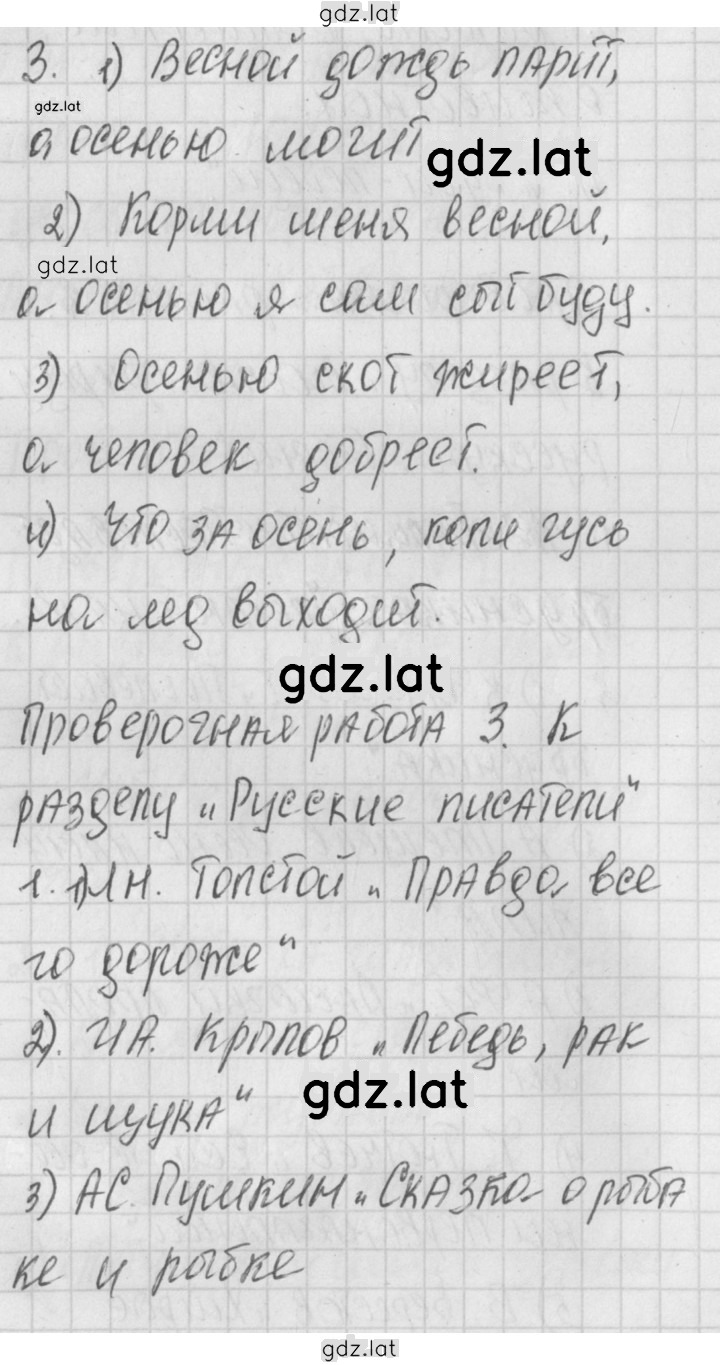 gdz.lat
3. 1) Весной дождь парит,
gdz.lat
а осенью мочит
gdz.lat
2) Корми меня весной,
gdz.lat
а осенью я сам сыт буду.
3) Осенью скот жиреет,
а человек добреет.
4) Что за осень, коли гусь
на лед выходит.
gdz.lat
Проверочная работа 3. К
разделу „Русские писатели"
1. 1) Л.Н. Толстой „Правда все
го дороже"
2). И.А. Крылов „Лебедь, рак
gdz.lat
и щука"
3) А.С. Пушкин „Сказка о рыба
ке и рыбке
gdz.lat